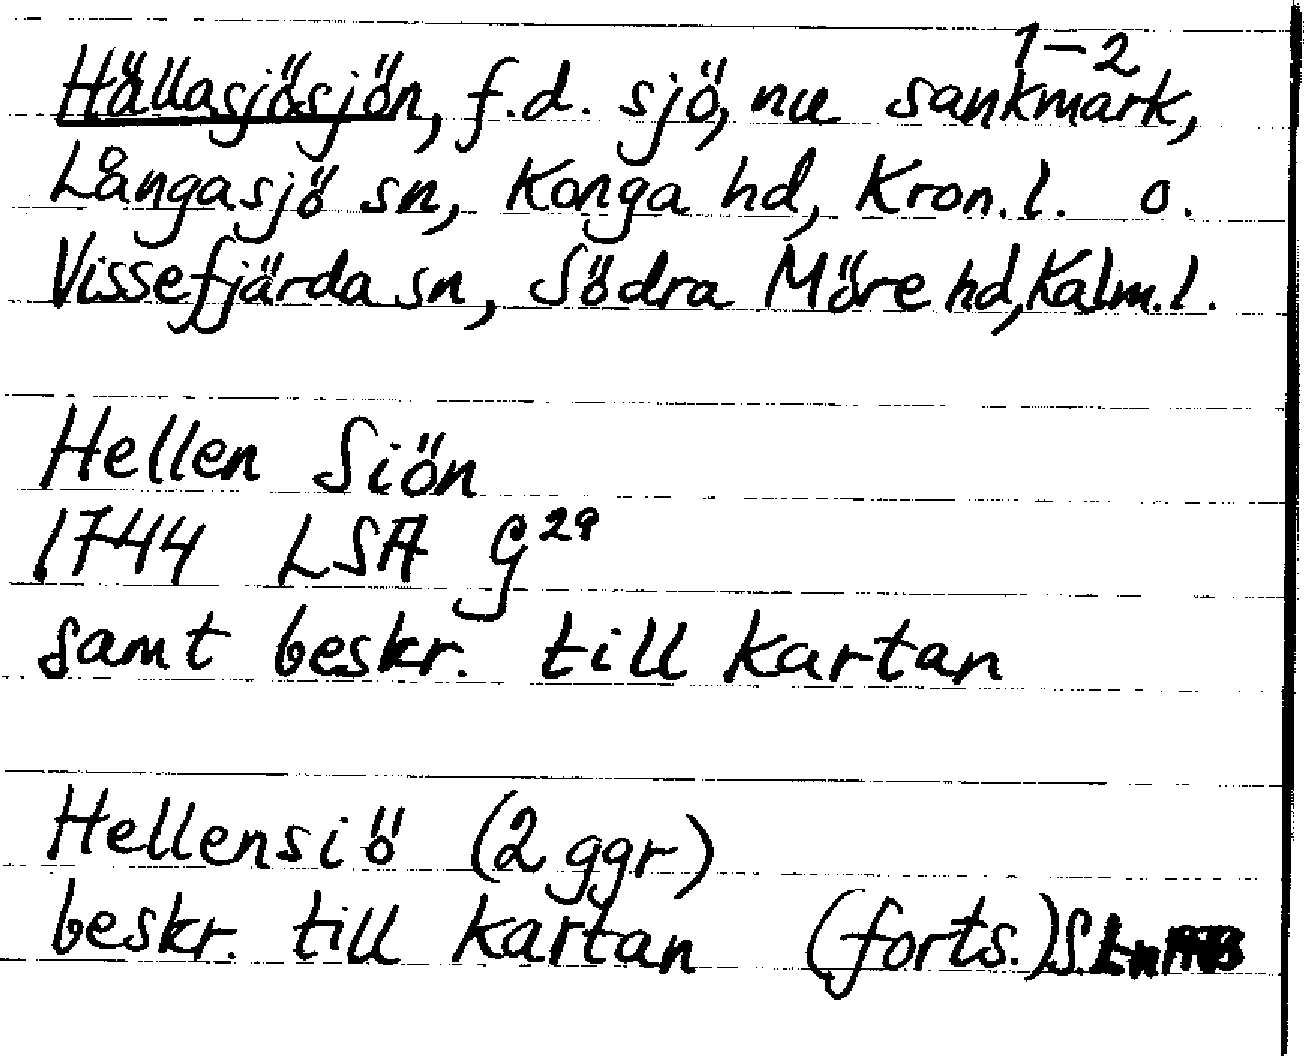 1-2
Hällasjösjön, f.d. sjö, nu sankmark,
Långasjö sn, Konga hd, Kron.l. o.
Vissefjärda sn, Södra Möre hd, Kalm.l.
Hellen Siön
1744 LSA G29
samt beskr. till kartan
Hellensiö (2 ggr)
beskr. till kartan (forts.)